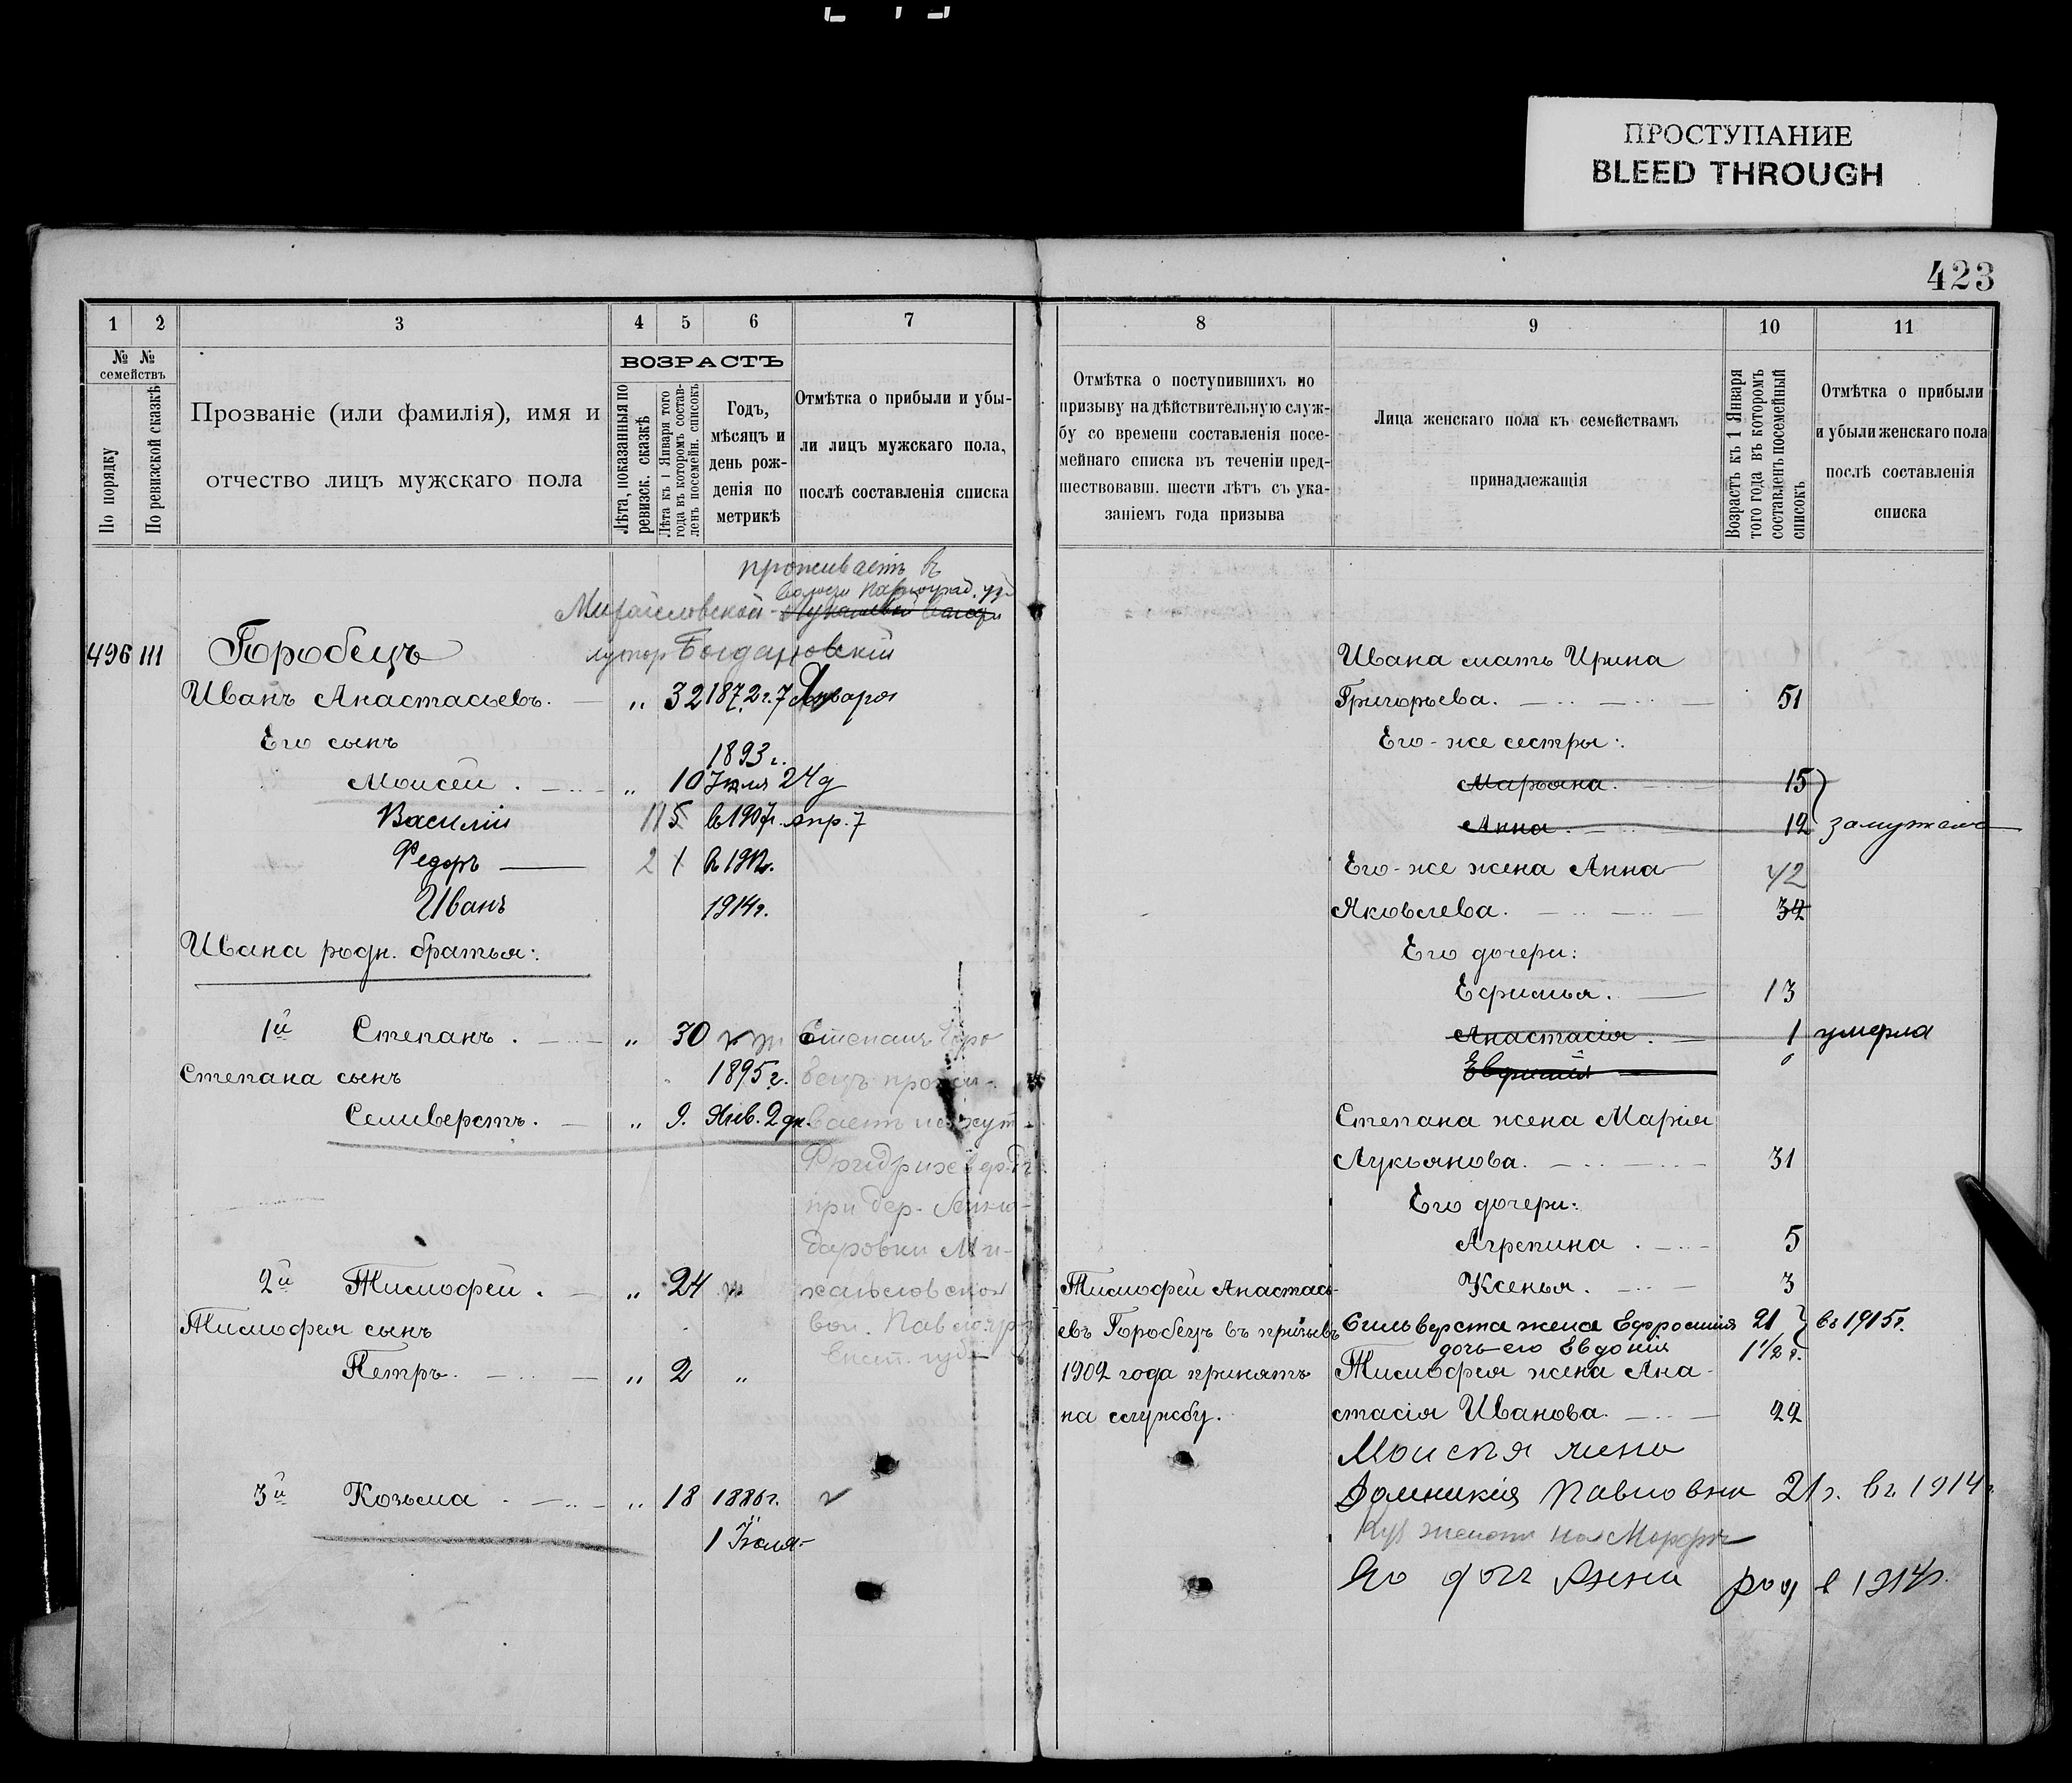 ПРОСТУПАНИЕ
BLEED THROUGH
423
1 2 3 4 5 6 7
№ № семействъ
По порядку
По ревизской сказкѣ
Прозваніе (или фамилія), имя и
отчество лицъ мужскаго пола
ВОЗРАСТЪ
Лѣта, показанныя по
ревизск. сказкѣ
Лѣта къ 1 Января того
года въ которомъ состав-
ленъ посемейн. списокъ
Годъ,
мѣсяцъ и
день рож-
денія по
метрикѣ
Отмѣтка о прибыли и убы-
ли лицъ мужскаго пола,
послѣ составленія списка
проживаетъ въ
волости Павлоград. уѣ
Михайловской
хуторѣ Богдановскій
496 111 Горобецъ
Иванъ Анастасьевъ. „ 32 1872 г. 7 Января
Его сынъ 1893 г.
Моисей. „ 10 Іюля 24 д
Василій 11 5 в 1907г. апр. 7
Федоръ 2 1 в 1912г.
Иванъ 1914г.
Ивана родн. братья:
1й Степанъ. „ 30 Степанъ Горо
Степана сынъ 1895 г. бецъ прожи-
Селиверстъ. „ 9. Янв. 2 дн. ваетъ на хут
при дер.
даровки Ми-
2й Тимофей. „ 24 хайловской
Тимофея сынъ вол. Павлогр
Екат. губ
Петръ. „ 2 „
3й Козьма „ 18 1886г.
1 Іюля
8 9 10 11
Отмѣтка о поступившихъ по
призыву на дѣйствительную служ-
бу со времени составленія посе-
мейнаго списка въ теченіи пред-
шествовавш. шести лѣтъ съ ука-
заніемъ года призыва
Лица женскаго пола къ семействамъ
принадлежащія
Возрастъ къ 1 Января
того года въ которомъ
составленъ посемейный
списокъ
Отмѣтка о прибыли
и убыли женскаго пола
послѣ составленія
списка
Ивана мать Ирина
Григорьева. 51
Его-же сестры:
Марьяна. 15
Анна. 12 замужемъ
Его-же жена Анна 42
Яковлева. 32
Его дочери:
Ефимья. 13
Анастасія. 1 умерла
Степана жена Марія
Лукьянова. 31
Его дочери:
Агрепина. 5
Тимофей Анастась- Ксенья. 3
евъ Горобецъ въ призывъ Сильверста жена Ефросинія 21 въ 1915г.
дочь его Евдокія 1½ г.
1902 года принятъ Тимофея жена Ана-
на службу. стасія Иванова. 22
Моисея жена
Домникія Павловна 21 г. въ 1914г
Его дочь Анна род в 1914г.